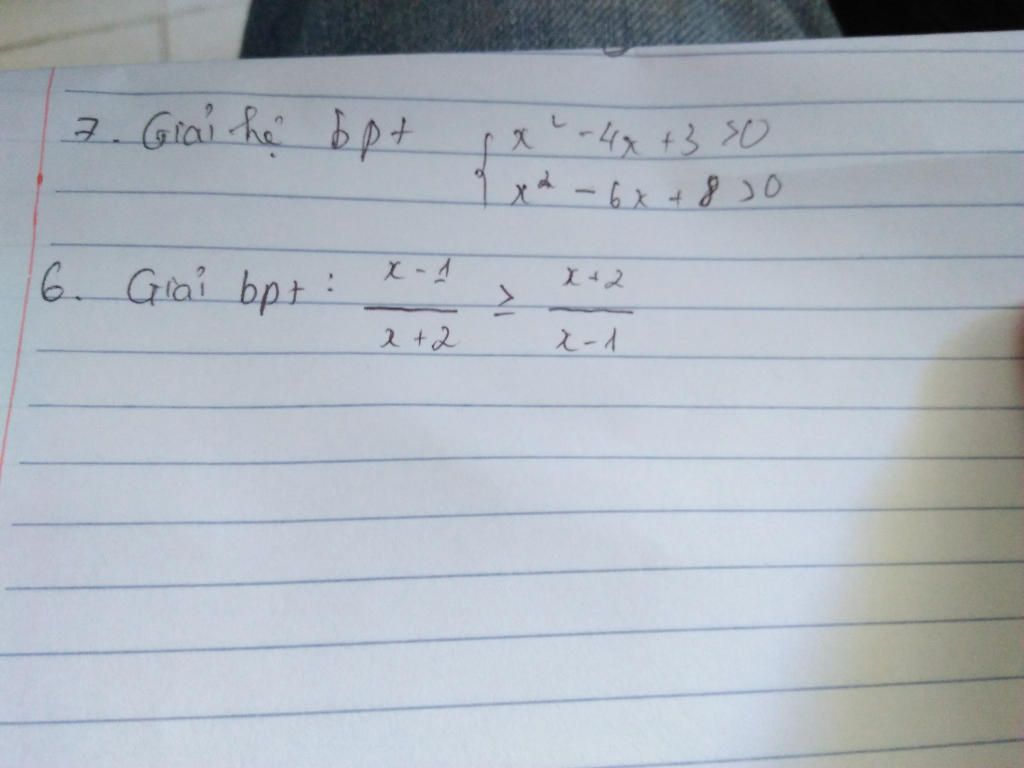 7. Giải hệ bpt { x² - 4x + 3 > 0
x² - 6x + 8 > 0
6. Giải bpt : (x - 1)/(x + 2) ≥ (x + 2)/(x - 1)